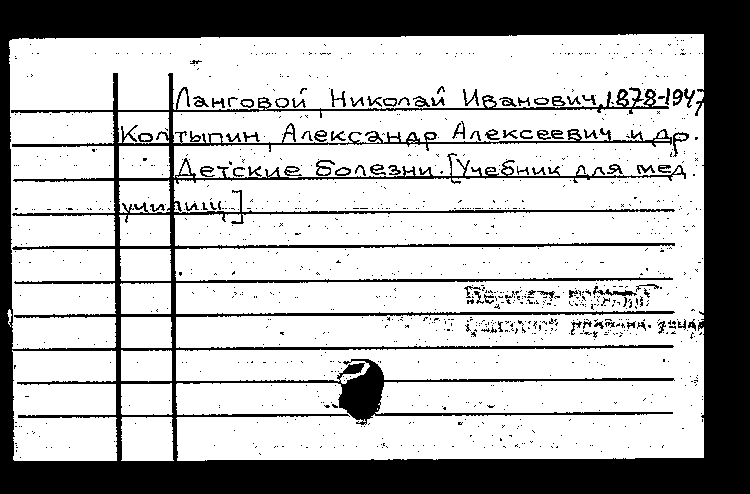 Ланговой, Николай Иванович, 1878-1947
Колтыпин, Александр Алексеевич и др.
Детские болезни. [Учебник для мед.
училищ.]